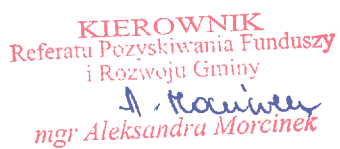 KIEROWNIK
Referatu Pozyskiwania Funduszy
i Rozwoju Gminy
A. Morcinek
mgr Aleksandra Morcinek